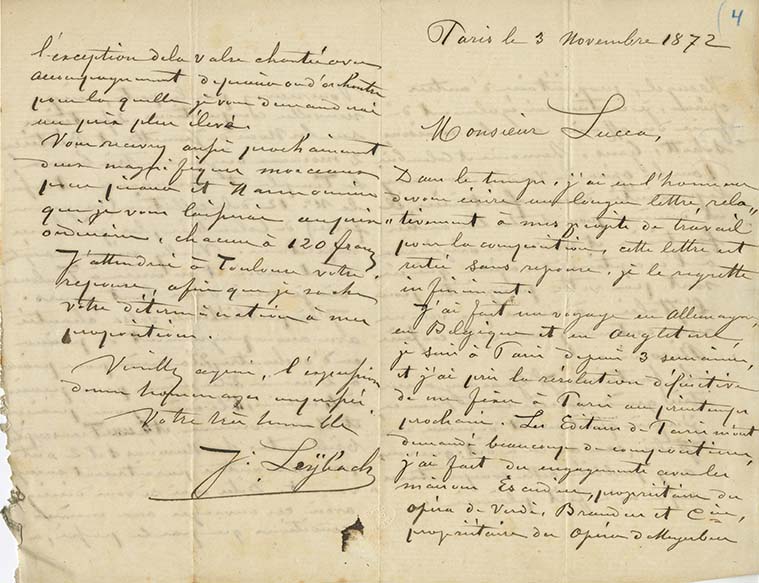 (4
Paris le 3 Novembre 1872
Monsieur Lucca,
Dans le temps, j'ai eu l'honneur
de vous écrire une longue lettre rela
"tivement à mes projets de travail
pour la composition, cette lettre est
restée sans réponse, je le regrette
infiniment.
J'ai fait un voyage en Allemagne,
en Belgique et en Angleterre,
je suis à Paris depuis 3 semaines,
et j'ai pris la résolution définitive
de me fixer à Paris au printemps
prochain. Les Editeurs de Paris m'ont
demandé beaucoup de compositions,
j'ai fait des engagements avec les
maisons Escudier, propriétaire des
opéra de Verdi, Brandus et Cie,
propriétaire des Opéra de Meyerbeer
l'exception de la valse chantée avec
accompagnement de piano ou d'orchestre
pour laquelle je vous demanderai
un prix plus élevé.
Vous recevrez aussi prochainement
deux magnifiques morceaux
pour piano et Harmonium
que je vous laisserai au prix
ordinaire, chacun à 120 francs
J'attendrai à Toulouse votre
réponse, afin que je sache
votre détermination à mes
propositions.
Veuillez agréer, l'expression
de mes hommages empressés.
Votre très humble
J. Leÿbach